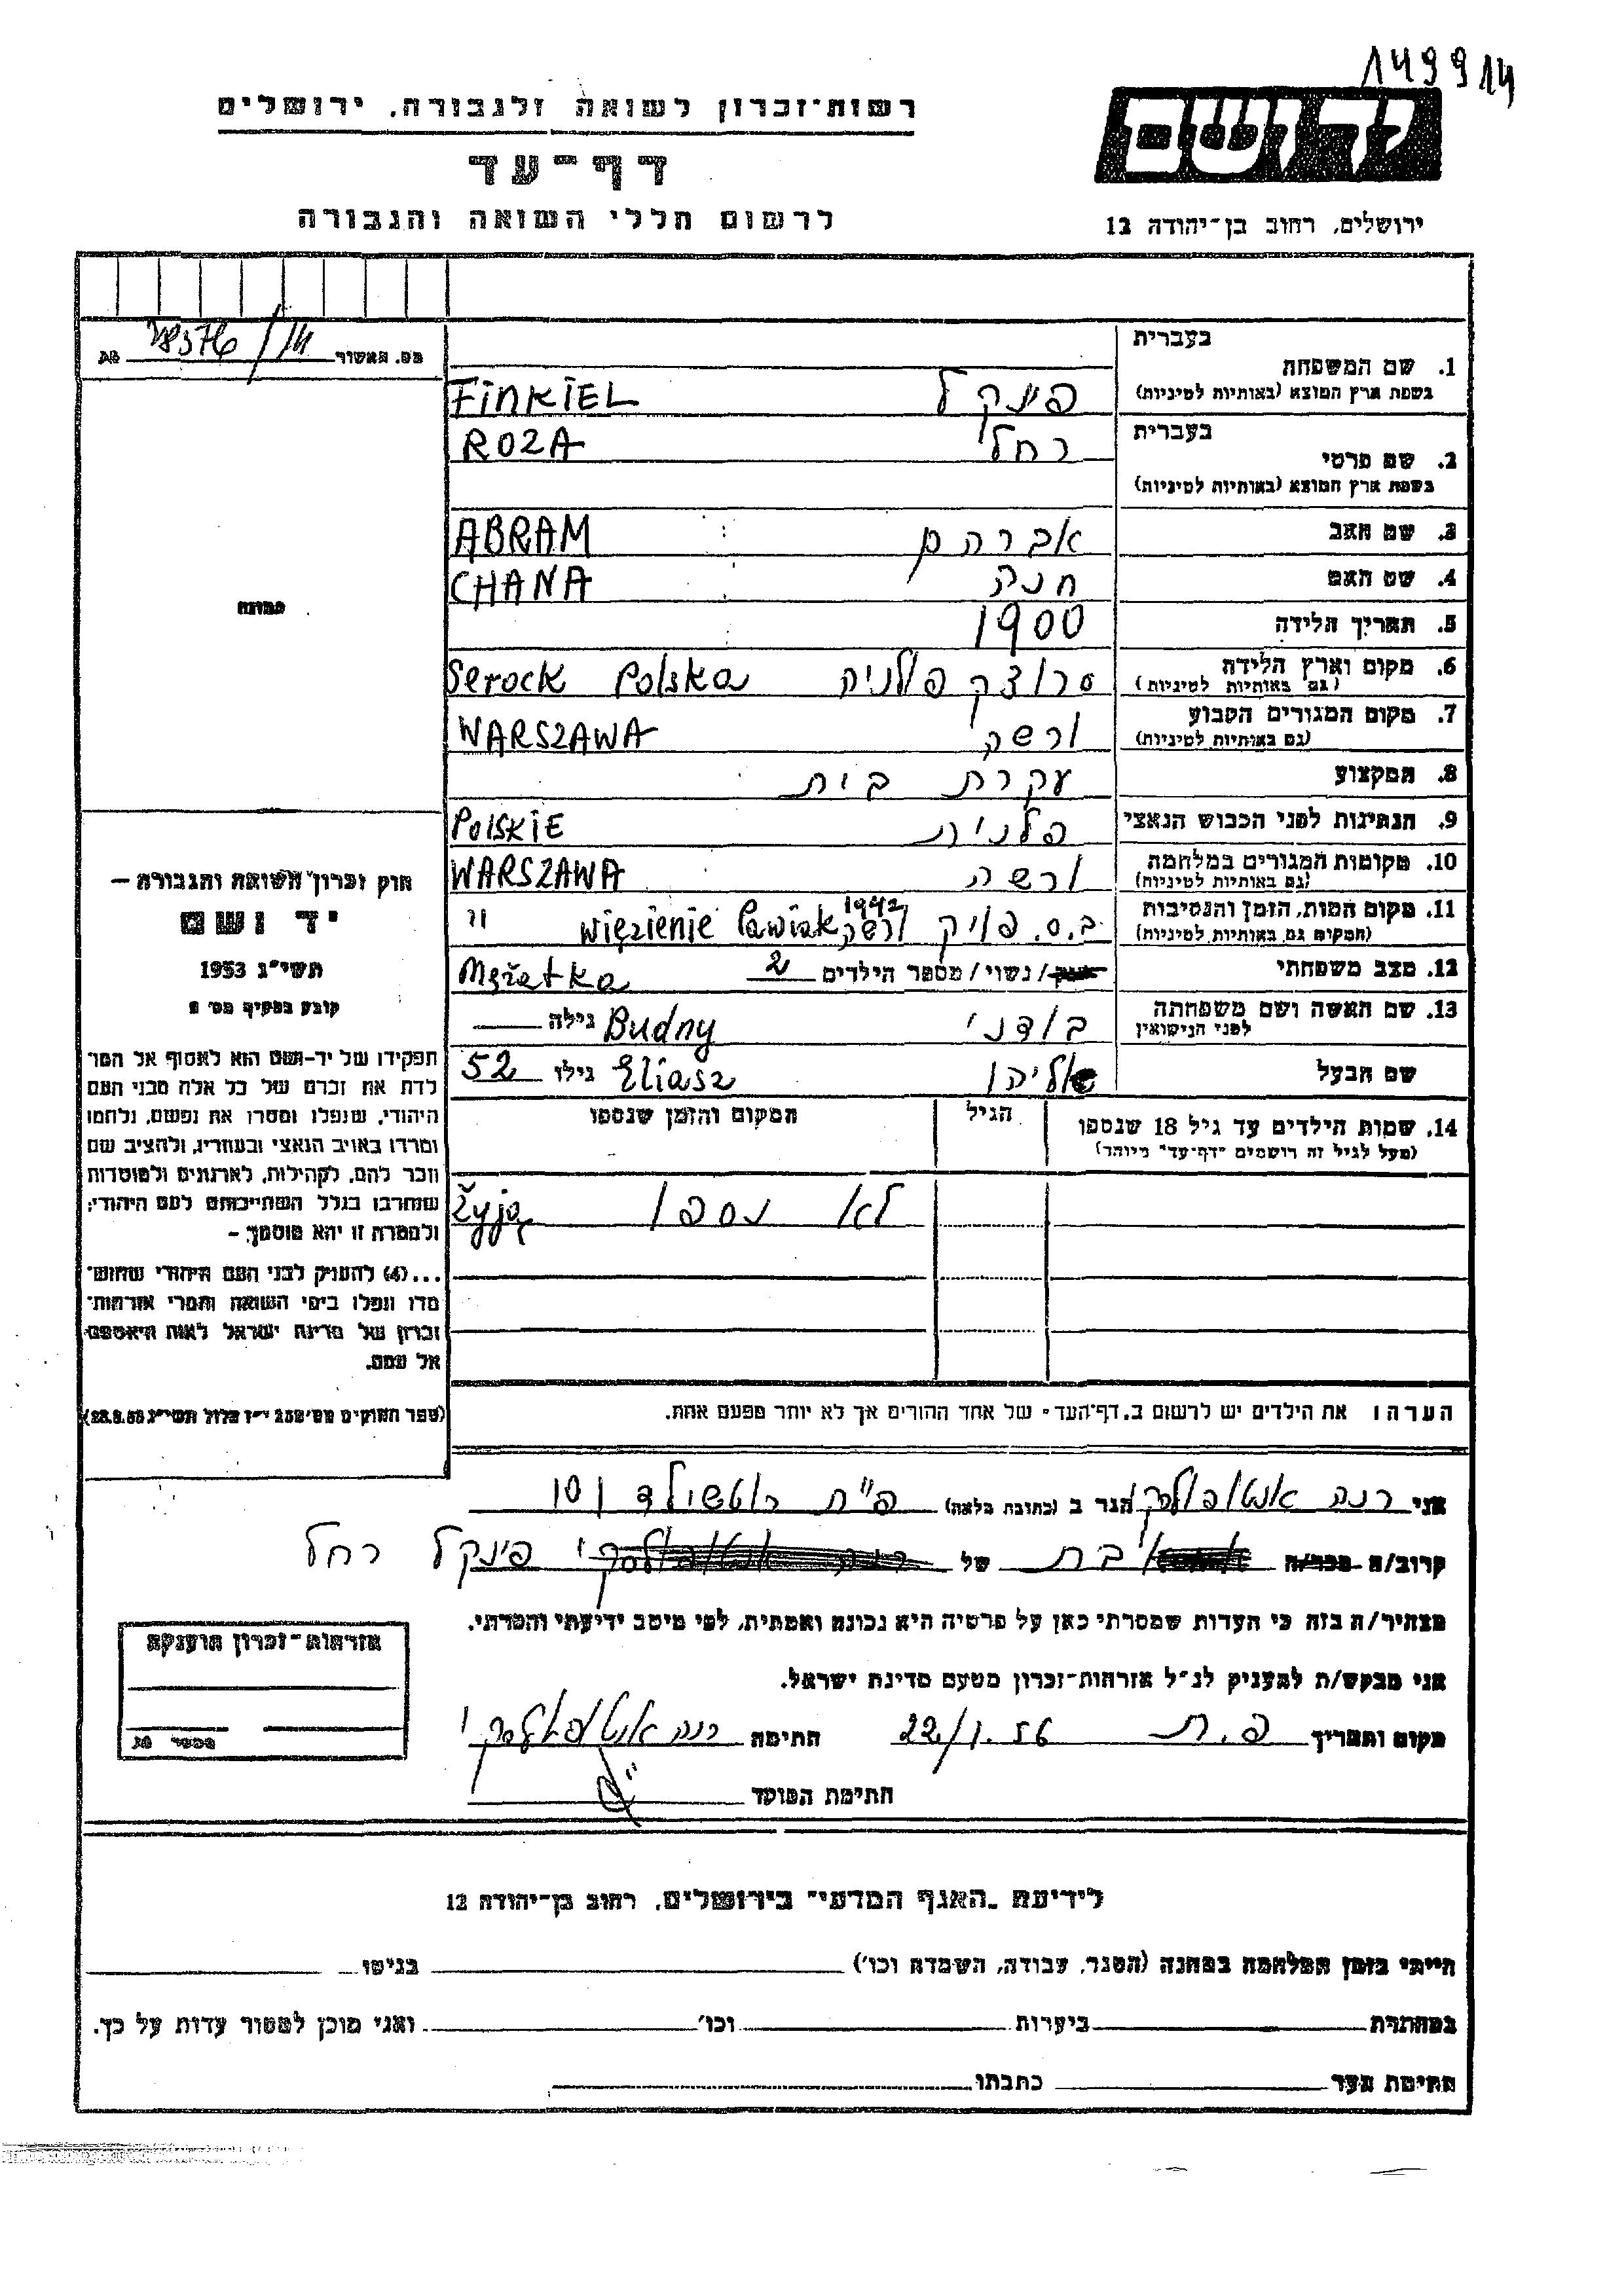 149914
יד ושם
רשות־זכרון לשואה ולגבורה, ירושלים
דף־עד
לרשום חללי השואה והגבורה
ירושלים, רחוב בן־יהודה 12
מס. האשור 78376/14 מת
בעברית
1. שם המשפחה
בשפת ארץ המוצא (באותיות לטיניות)
פינקל FiNKIEL
בעברית
2. שם פרטי
בשפת ארץ המוצא (באותיות לטיניות)
רחל ROZA
3. שם האב אברהם ABRAM
4. שם האם חנה CHANA
תמונה
5. תאריך הלידה 1900
6. מקום וארץ הלידה
(גם באותיות לטיניות)
סרוצק פולניה Serock Polska
7. מקום המגורים הקבוע
(גם באותיות לטיניות)
ורשה WARSZAWA
8. המקצוע עקרת בית
9. הנתינות לפני הכבוש הנאצי פלנית POLSKIE
10. מקומות המגורים במלחמה
(גם באותיות לטיניות)
ורשה WARSZAWA
11. מקום המות, הזמן והנסיבות
(המקום גם באותיות לטיניות)
ב.ס. פויק ורשה 1942 więzienie Pawiak "
12. מצב משפחתי
רווק/ נשוי/ מספר הילדים 2 Mężatka
13. שם האשה ושם משפחתה
לפני הנישואין
בודני Budny גילה
שם הבעל אליהו Eliasz גילו 52
14. שמות הילדים עד גיל 18 שנספו
(מעל לגיל זה רושמים "דף־עד" מיוחד)
הגיל
המקום והזמן שנספו
לא נספו Żyją
חוק זכרון השואה והגבורה —
יד ושם
תשי״ג 1953
קובע בסעיף מס׳ 2
תפקידו של יד־ושם הוא לאסוף אל המו־
לדת את זכרם של כל אלה מבני העם
היהודי, שנפלו ומסרו את נפשם, נלחמו
ומרדו באויב הנאצי ובעוזריו, ולהציב שם
וזכר להם, לקהילות, לארגונים ולמוסדות
שנחרבו בגלל השתייכותם לעם היהודי;
ולמטרה זו יהא מוסמך —
...(4) להעניק לבני העם היהודי שהוש־
מדו ונפלו בימי השואה והמרי אזרחות־
זכרון של מדינת ישראל לאות היאספם
אל עמם.
(ספר החוקים מס׳ 132 י״ז אלול תשי״ג 28.8.53)
הערה: את הילדים יש לרשום ב„דף־העד" של אחד ההורים אך לא יותר מפעם אחת.
אני רנה אנטופולסקי הגר ב (כתובת מלאה) פ״ת רוטשילד 101
קרוב/ה מכר/ה בת של פינקל רחל
מצהיר/ה בזה כי העדות שמסרתי כאן על פרטיה היא נכונה ואמתית, לפי מיטב ידיעתי והכרתי.
אני מבקש/ת להעניק לנ״ל אזרחות־זכרון מטעם מדינת ישראל.
מקום ותאריך פ.ת 22/1.56 חתימה רנה אנטופולסקי
חתימת הפוקד
אזרחות־זכרון הוענקה
מספר מת
לידיעת „האגף המדעי" בירושלים, רחוב בן־יהודה 12
הייתי בזמן המלחמה במחנה (הסגר, עבודה, השמדה וכו׳) בגיטו
במחתרת ביערות וכו׳ ואני מוכן למסור עדות על כך.
חתימת העד כתבתו